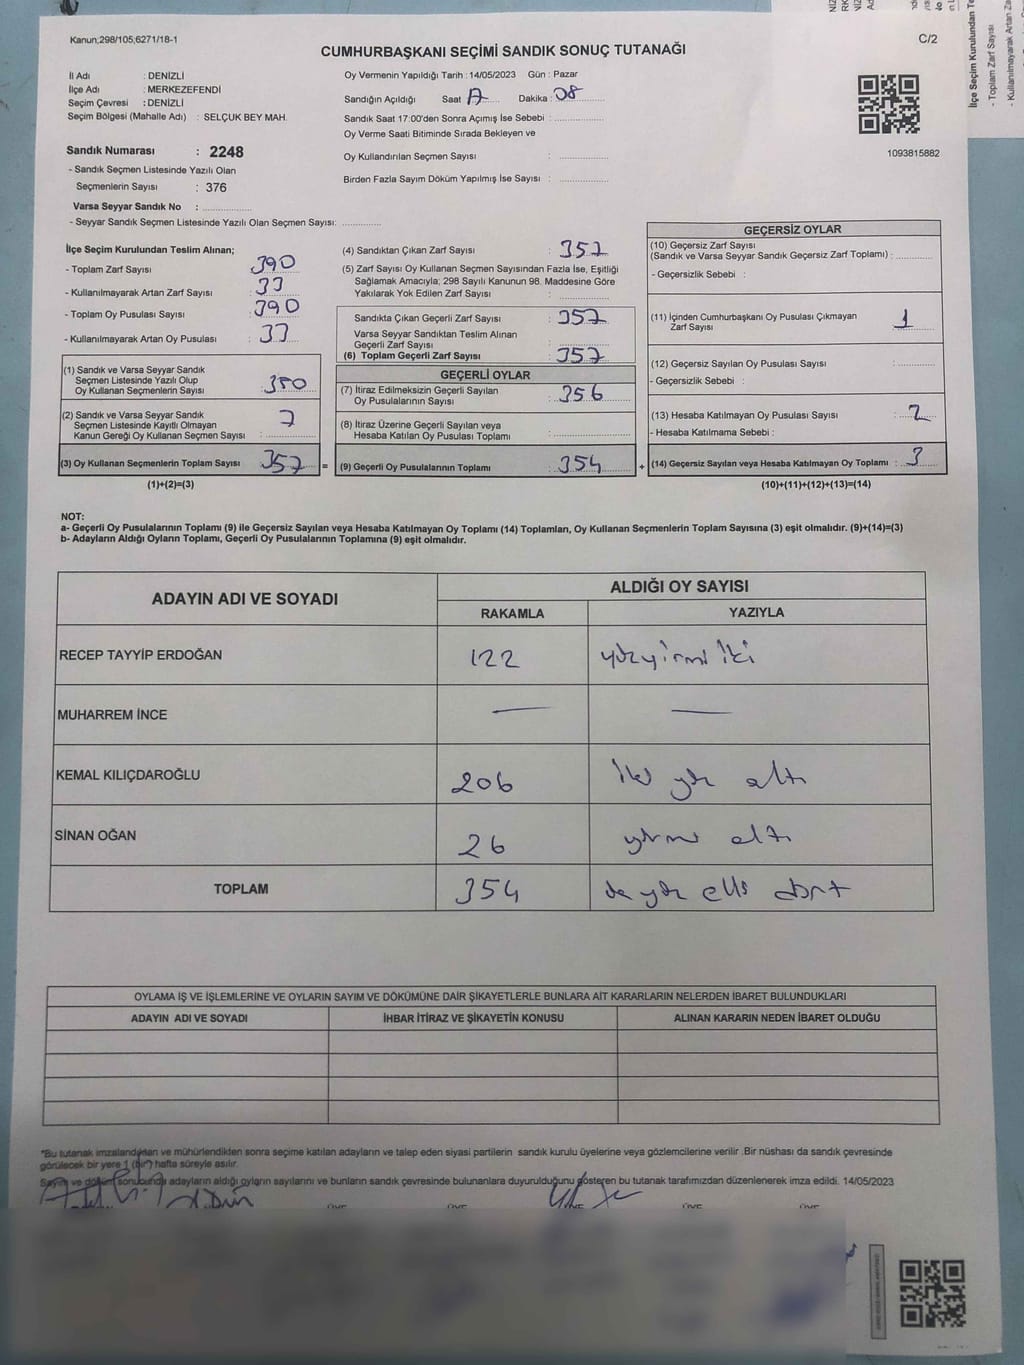 Kanun;298/105,6271/18-1
C/2
CUMHURBAŞKANI SEÇİMİ SANDIK SONUÇ TUTANAĞI
İl Adı : DENİZLİ
İlçe Adı : MERKEZEFENDİ
Seçim Çevresi : DENİZLİ
Seçim Bölgesi (Mahalle Adı) : SELÇUK BEY MAH.
Sandık Numarası : 2248
- Sandık Seçmen Listesinde Yazılı Olan
Seçmenlerin Sayısı : 376
Varsa Seyyar Sandık No :
- Seyyar Sandık Seçmen Listesinde Yazılı Olan Seçmen Sayısı:
Oy Vermenin Yapıldığı Tarih : 14/05/2023 Gün : Pazar
Sandığın Açıldığı Saat Dakika : 08
Sandık Saat 17:00'den Sonra Açımış İse Sebebi :
Oy Verme Saati Bitiminde Sırada Bekleyen ve
Oy Kullandırılan Seçmen Sayısı :
Birden Fazla Sayım Döküm Yapılmış İse Sayısı :
1093815882
İlçe Seçim Kurulundan Teslim Alınan;
- Toplam Zarf Sayısı : 390
- Kullanılmayarak Artan Zarf Sayısı : 33
- Toplam Oy Pusulası Sayısı : 390
- Kullanılmayarak Artan Oy Pusulası : 33
(1) Sandık ve Varsa Seyyar Sandık
Seçmen Listesinde Yazılı Olup
Oy Kullanan Seçmenlerin Sayısı : 350
(2) Sandık ve Varsa Seyyar Sandık
Seçmen Listesinde Kayıtlı Olmayan
Kanun Gereği Oy Kullanan Seçmen Sayısı : 7
(3) Oy Kullanan Seçmenlerin Toplam Sayısı : 357 =
(1)+(2)=(3)
(4) Sandıktan Çıkan Zarf Sayısı : 357
(5) Zarf Sayısı Oy Kullanan Seçmen Sayısından Fazla İse, Eşitliği
Sağlamak Amacıyla; 298 Sayılı Kanunun 98. Maddesine Göre
Yakılarak Yok Edilen Zarf Sayısı :
Sandıkta Çıkan Geçerli Zarf Sayısı : 357
Varsa Seyyar Sandıktan Teslim Alınan
Geçerli Zarf Sayısı :
(6) Toplam Geçerli Zarf Sayısı : 357
GEÇERLİ OYLAR
(7) İtiraz Edilmeksizin Geçerli Sayılan
Oy Pusulalarının Sayısı : 356
(8) İtiraz Üzerine Geçerli Sayılan veya
Hesaba Katılan Oy Pusulası Toplamı :
(9) Geçerli Oy Pusulalarının Toplamı : 354 +
GEÇERSİZ OYLAR
(10) Geçersiz Zarf Sayısı
(Sandık ve Varsa Seyyar Sandık Geçersiz Zarf Toplamı) :
- Geçersizlik Sebebi :
(11) İçinden Cumhurbaşkanı Oy Pusulası Çıkmayan
Zarf Sayısı : 1
(12) Geçersiz Sayılan Oy Pusulası Sayısı :
- Geçersizlik Sebebi :
(13) Hesaba Katılmayan Oy Pusulası Sayısı : 2
- Hesaba Katılmama Sebebi :
(14) Geçersiz Sayılan veya Hesaba Katılmayan Oy Toplamı : 3
(10)+(11)+(12)+(13)=(14)
NOT:
a- Geçerli Oy Pusulalarının Toplamı (9) ile Geçersiz Sayılan veya Hesaba Katılmayan Oy Toplamı (14) Toplamları, Oy Kullanan Seçmenlerin Toplam Sayısına (3) eşit olmalıdır. (9)+(14)=(3)
b- Adayların Aldığı Oyların Toplamı, Geçerli Oy Pusulalarının Toplamına (9) eşit olmalıdır.
ADAYIN ADI VE SOYADI
ALDIĞI OY SAYISI
RAKAMLA YAZIYLA
RECEP TAYYİP ERDOĞAN 122 yüzyirmi iki
MUHARREM İNCE — —
KEMAL KILIÇDAROĞLU 206 İki yüz altı
SİNAN OĞAN 26 yirmi altı
TOPLAM 354 üç yüz elli dört
OYLAMA İŞ VE İŞLEMLERİNE VE OYLARIN SAYIM VE DÖKÜMÜNE DAİR ŞİKAYETLERLE BUNLARA AİT KARARLARIN NELERDEN İBARET BULUNDUKLARI
ADAYIN ADI VE SOYADI İHBAR İTİRAZ VE ŞİKAYETİN KONUSU ALINAN KARARIN NEDEN İBARET OLDUĞU
*Bu tutanak imzalandıktan ve mühürlendikten sonra seçime katılan adayların ve talep eden siyasi partilerin sandık kurulu üyelerine veya gözlemcilerine verilir .Bir nüshası da sandık çevresinde
görülecek bir yere 1 (bir) hafta süreyle asılır.
Sayım ve döküm sonucunda adayların aldığı oyların sayılarını ve bunların sandık çevresinde bulunanlara duyurulduğunu gösteren bu tutanak tarafımızdan düzenlenerek imza edildi. 14/05/2023
İlçe Seçim Kurulundan Te
- Toplam Zarf Sayısı
- Kullanılmayarak Artan Za